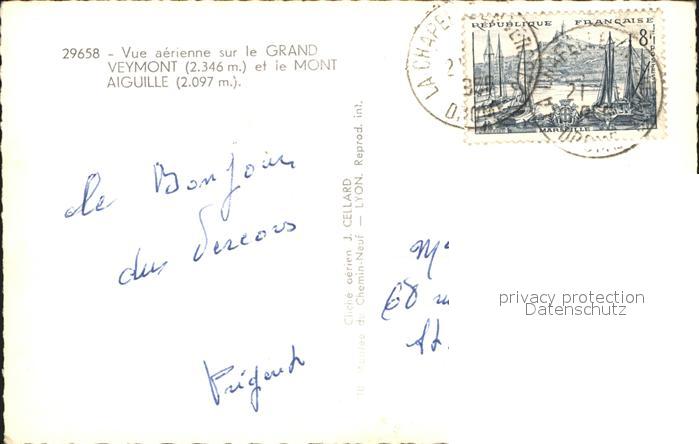 29658 - Vue aérienne sur le GRAND
VEYMONT (2.346 m.) et le MONT
AIGUILLE (2.097 m.).
RÉPUBLIQUE FRANÇAISE
8F
MARSEILLE
LA CHAPELLE
DROME
21
Cliché aérien J. CELLARD
Montée du Chemin-Neuf — LYON. Reprod. int.
le Bonjour
du Vercors
68
privacy protection
Datenschutz